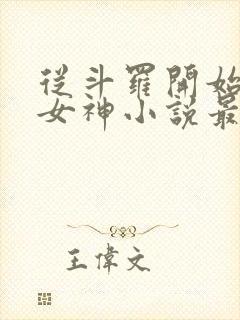 從斗羅開始
女神小說最
王偉文